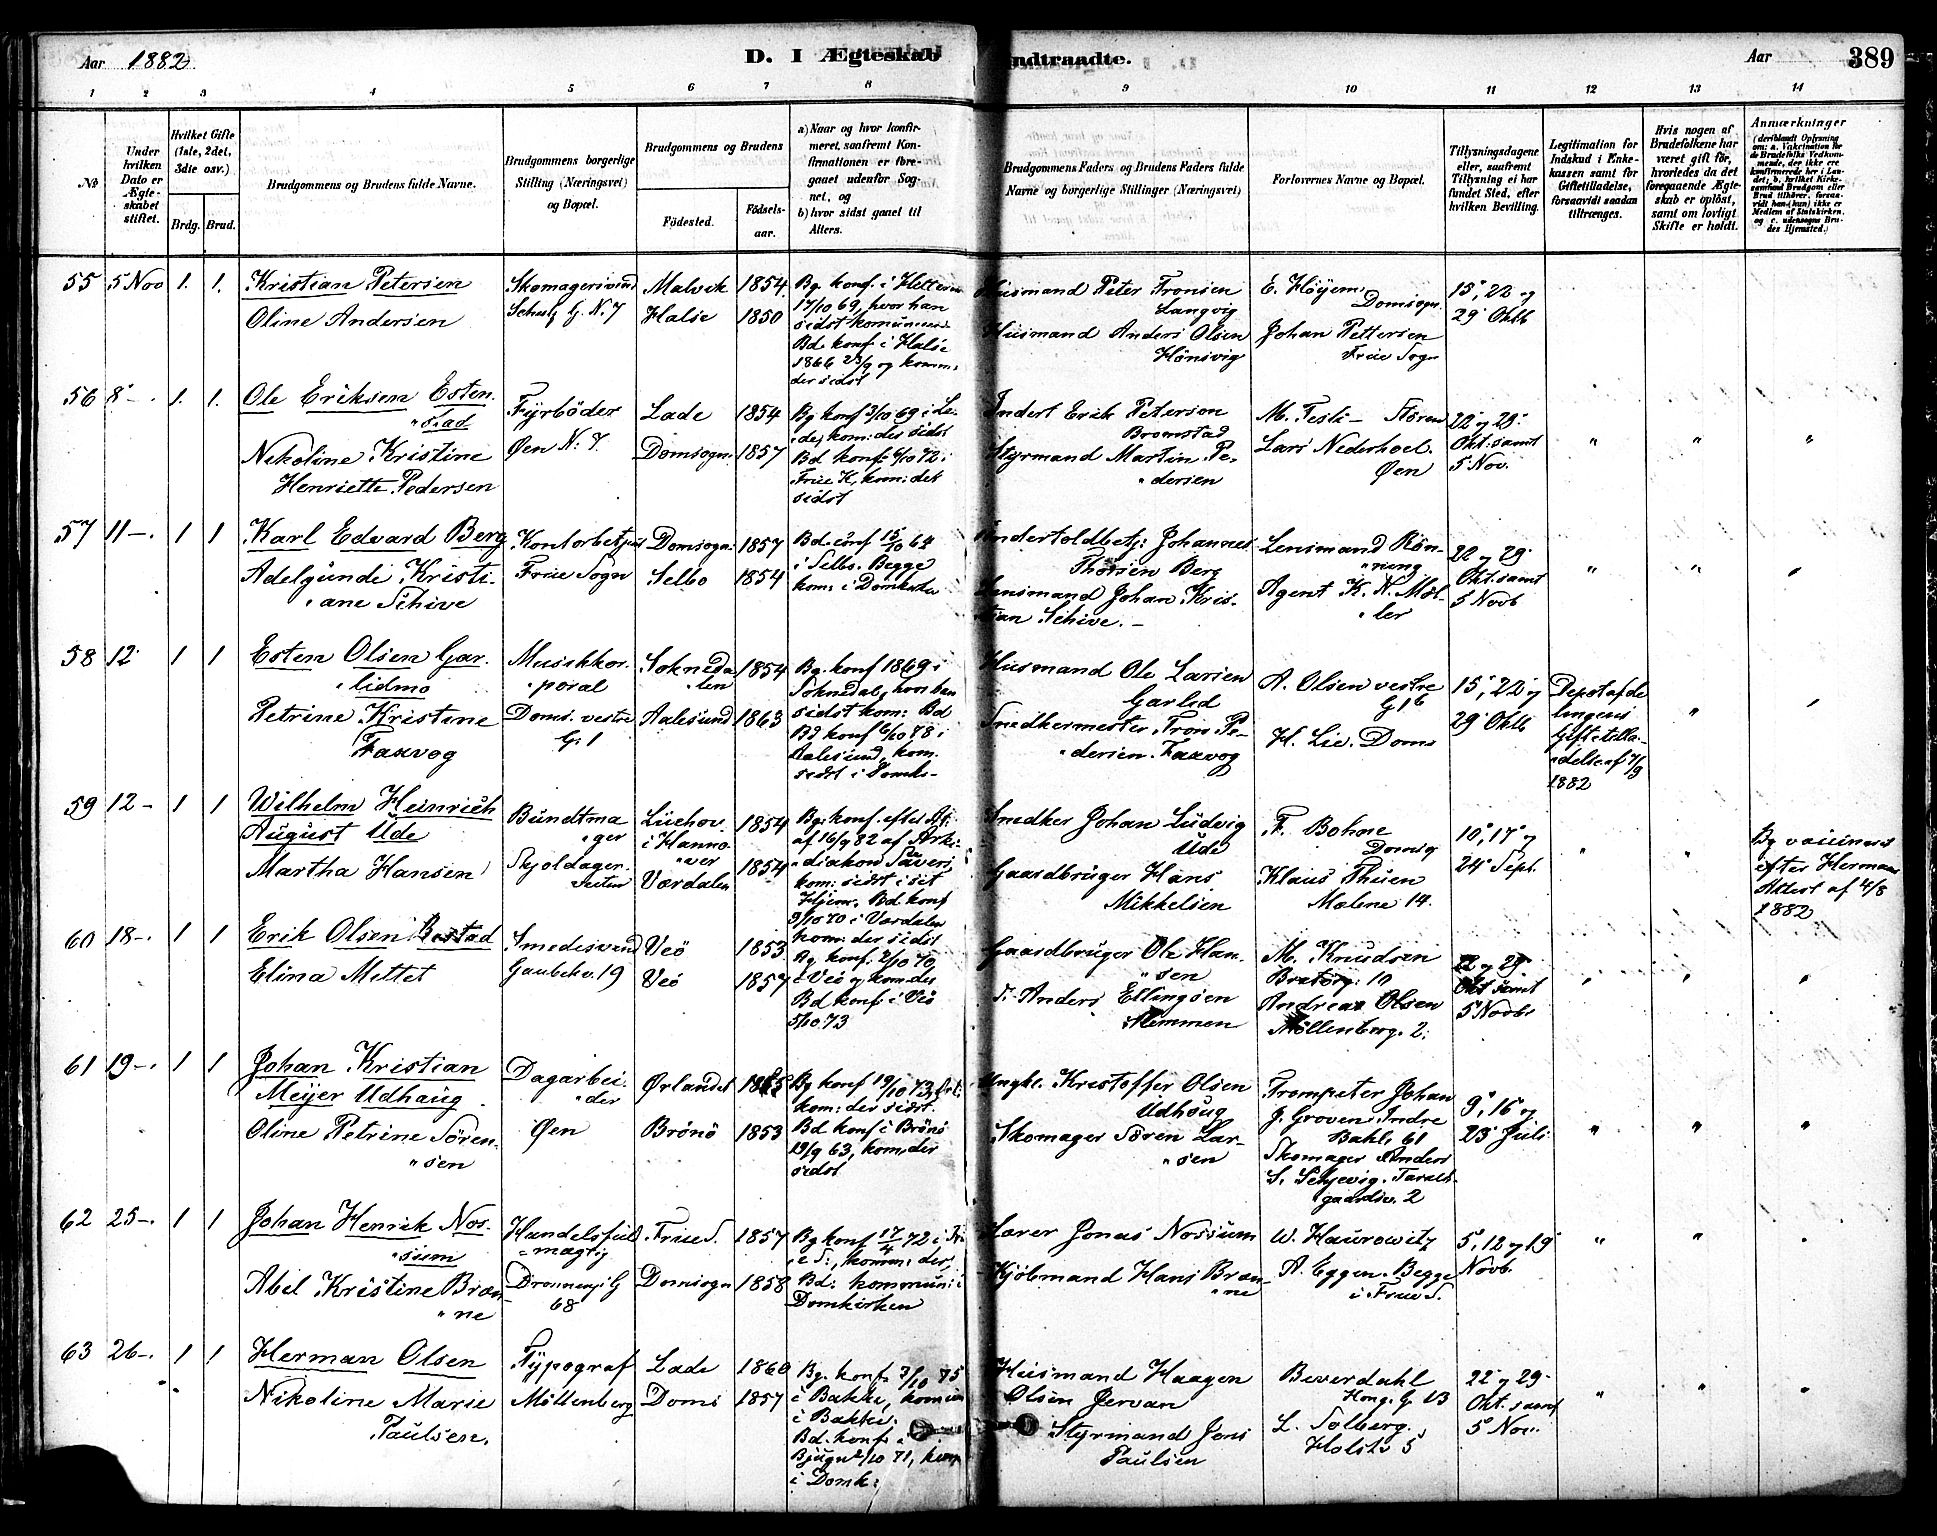 Aar 1882
D. I Ægteskab Indtraadte.
Aar 389
1 2 3 4 5 6 7 8 9 10 11 12 13 14
№
Under hvilken Dato er Ægteskabet stiftet.
Hvilket Gifte (1ste, 2det, 3die osv.)
Brdg. Brud.
Brudgommens og Brudens fulde Navne.
Brudgommens borgerlige Stilling (Næringsvei) og Bopæl.
Brudgommens og Brudens
Fødested.
Fødselsaar.
a) Naar og hvor konfirmeret, saafremt Konfirmationen er foregaaet udenfor Sognet, og
b) hvor sidst gaaet til Alters.
Brudgommens Faders og Brudens Faders fulde Navne og borgerlige Stillinger (Næringsvei)
Forlovernes Navne og Bopæl.
Tillysningsdagene eller, saafremt Tillysning ei har fundet Sted, efter hvilken Bevilling.
Legitimation for Indskud i Enkekassen samt for Giftetilladelse, forsaavidt saadan tiltrænges.
Hvis nogen af Brudefolkene har været gift før, hvorledes da det foregaaende Ægteskab er opløst, samt om lovligt Skifte er holdt.
Anmærkninger
55 5 Nov 1. 1.
Kristian Petersen
Oline Andersen
Skomagersvend
G. N. 7
Malvik 1854
Halse 1850
17/10 69, hvor han
Bd. konf. i Halse
1866 23/9 og komm:
der sidst
Husmand Peter Fronsen
Langvig
Husmand Anders Olsen
Hönsvig
E. Höyem
Domsogn.
Johan Pettersen
Frue Sogn
15', 22' og
29' Oktb
56 8 - 1. 1.
Ole Eriksen Esten-
"stad
Nikoline Kristine
Henriette Pedersen
Fyrböder
Øen N. 7.
Lade 1854
Domsogn. 1857
Bg konf 3/10 69 i La-
"de, kom: der sidst
Bd konf: 6/10 72 i
Frue K, kom: det
sidst
Inderst Erik Peterson
Bromstad
Styrmand Martin Pe-
"dersen
Lars Nederhoel.
Øen
22' og 29'
Okt: samt
5' Nov.
57 11 - 1 1
Karl Edvard Berg
Adelgunde Kristi-
"ane Schive
Kontorbetjent
Frue Sogn
Domsogn: 1857
Selbo 1854
Bd. conf 15/10 64
i Selbo. Begge
kom: i Domkirken
Undertoldbetj: Johannes
Thorsen Berg
Lensmand Johan Kris-
tian Schive. -
Lensmand Rön-
"ning
Agent K. N. Möl-
"ler
22' og 29'
Okt: samt
5' Novb
58 12' 1 1
Esten Olsen Gar-
"lidmo
Petrine Kristine
Faxvog
Musikkor-
"poral
Doms. vestre
G. 1
Sokneda-
"len 1854
Aalesund 1863
Bg. konf 1869 i
Soknedal, hvor han
sidst kom: Bd
Bd konf 6/10 78 i
Aalesund, kom.
sidst i Domk-
Husmand Ole Larsen
Garlid
Snedkermester Tron Pe-
"dersen Faxvog
A. Olsen vestre
G 1 b
H. Lie. Doms
15', 22' og
29' Oktb
Depotafde
lingens
Giftetilla-
"delse af 7/9
1882
59 12 - 1 1
Wilhelm Heinrich
August Ude
Martha Hansen
Bundtma
"ger
Lüchov.
i Hanno-
"ver 1854
Værdalen 1854
Bg. konf. efter At:
af 16/9 82 af Arki-
"diakon
kom: sidst i sit
Hjem. Bd konf
9/10 70 i Værdalen
kom: der sidst
Snedker Johan Ludvig
Ude
Gaardbruger Hans
Mikkelsen
F. Bohne
Domsg
Klaus Thuen
Molene 14.
10', 17' og
24' Sept.
Bg vaccineret
efter
Attest af 4/8
1882
60 18 - 1 1
Erik Olsen Bostad
Elina Mettet
Smedesvend
Gaubekv. 19
Veö 1853
Veö 1857
Bg. konf. 2/10 70
i Veö og kom der
Bd konf i Veö
5/10 73
Gaardbruger Ole Han-
"sen
Anders Ellingsen
M. Knudsen
Bratörg: 10
Andreas Olsen
Möllenberg. 2.
22 og 29'
Okt samt
5' Novbr
61 19 - 1 1
Johan Kristian
Meyer Udhaug
Oline Petrine Sören-
"sen
Dagarbei-
"der
Øen
Ørlandet
Brönö 1853
Bg konf 19/10 73
kom: der sidst.
Bd konf i Brönö
13/9 63, kom, der
sidst
Ungkl. Kristoffer Olsen
Udhoug
Skomager Sören Lar-
"sen
Trompeter Johan
J. Groven. Indre
Bakl. 61
Skomager Anders
9', 16' og
23' Juli
62 25 - 1 1
Johan Henrik Nos-
"sum
Abel Kristine Bræn-
"ne
Handelsful
"mægtig
Dronnengs G
68
Frue S. 1857
Domsogn 1858
Bg konf 17/4 72 i Fr:
S:, komm: der,
Bd: kommun: i
Domkirken
Farer Jonas Nossum
Kjöbmand Hans Bræn-
"ne
W. Haurowitz
A. Eggen. Begge
i Frue S.
5', 12' og 19'
Novb.
63 26 - 1 1
Herman Olsen
Nikoline Marie
Paulsen.
Typograf
Möllenberg
Lade 1860
Doms 1857
Bg. konf. 3/10 75
i Bakke, kom
i Bakke.
Bd. konf. i
Bjugn 2/10 71, kom
i Domk:
Husmand Haagen
Olsen Jervan
Styrmand Jens
Paulsen
Beverdahl
Kong. G. 13
L. Solberg.
Holstv 5
22' og 29'
Okt. samt
5' Nov.